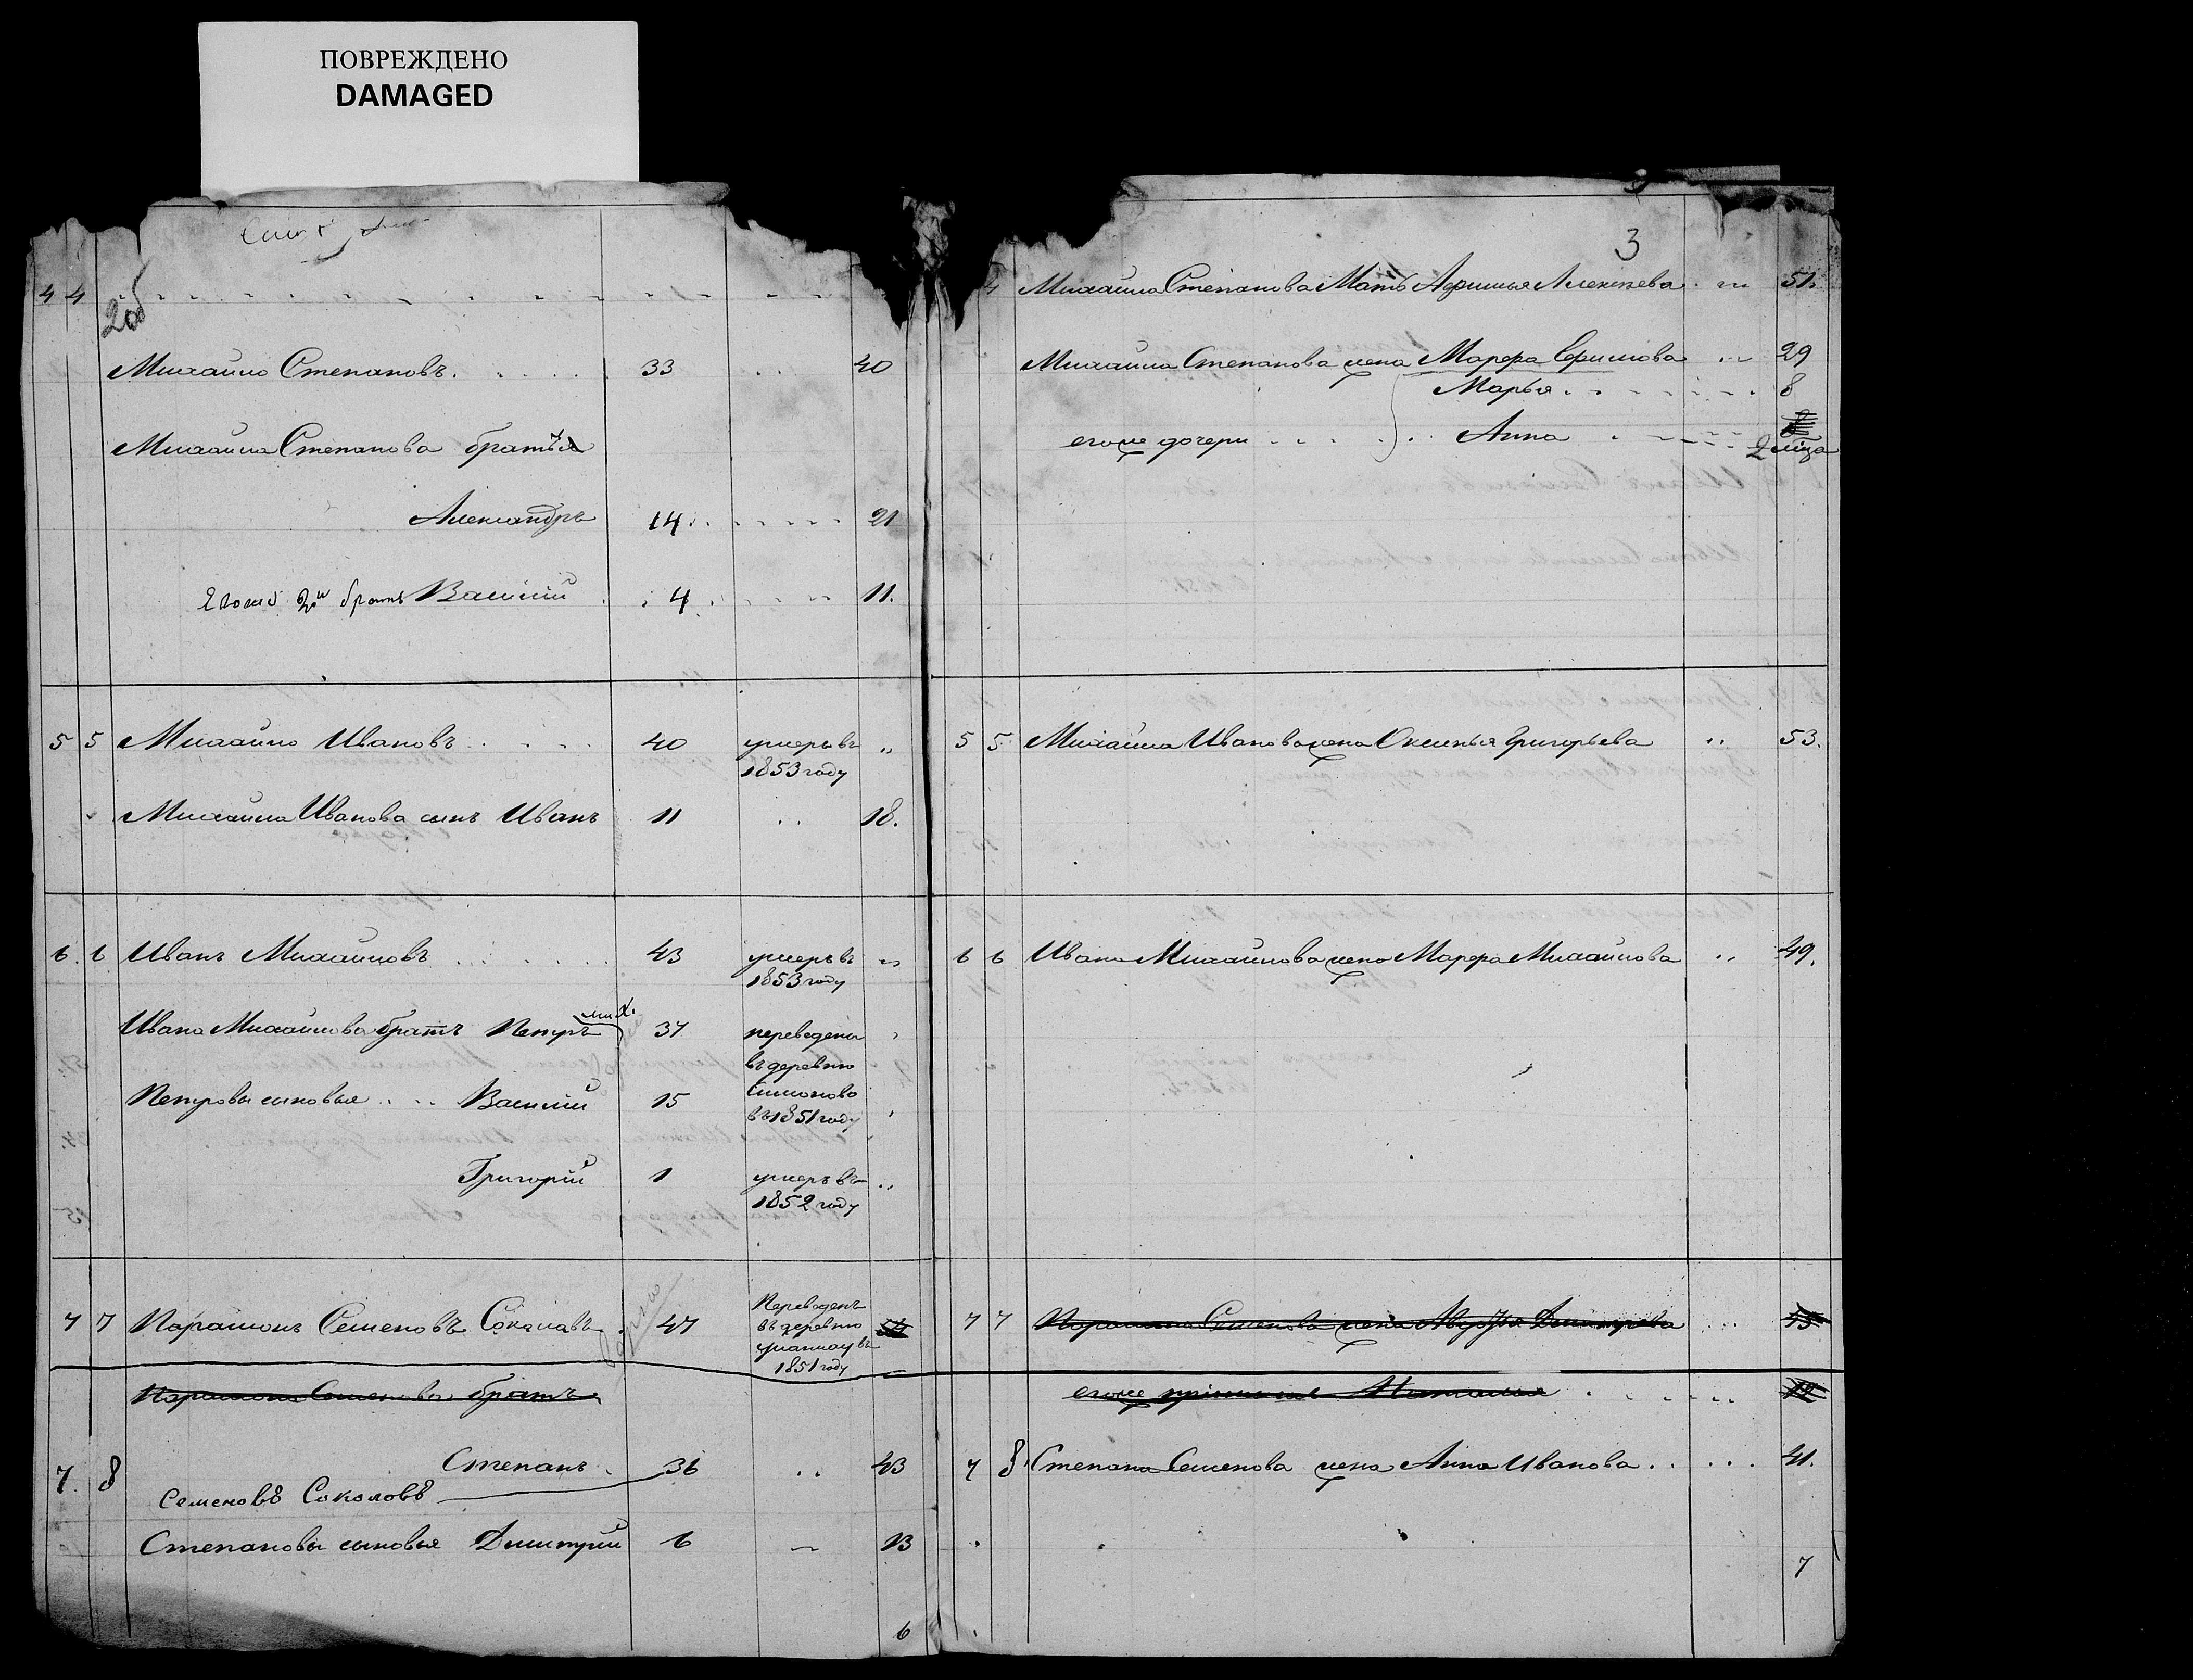 ПОВРЕЖДЕНО
DAMAGED
4 4
2об
Михайло Степановъ 33 40
Михайла Степанова братья
Александръ 14 21
Егоже 2й братъ Василий 4 11.
5 5 Михайло Ивановъ 40 умеръ въ "
1853 году
Михайла Иванова сынъ Иванъ 11 18.
6. 6 Иванъ Михайловъ 43 умеръ въ "
1853 году
Ивана Михайлова братъ Петръ Мих. 37 переведены
въ деревню
Петровы сыновья Василий 15 Симоново
въ 1851 году
Григорий 1 умеръ въ
1852 году
7 7 Парамонъ Семеновъ Соколавъ 47 Переведенъ
въ деревню
въ
1851 году
Парамона Семенова братъ
7. 8 Степанъ 36 43
Семеновъ Соколовъ
Степановы сыновья Димитрий 6 13
6
3
4 Михайла Степанова Мать Афимья Алексеева 51.
Михайла Степанова жена Марфа Ефимова 29
Марья 8
егоже дочери Анна 2 мѣца
5 5 Михайла Иванова жена Оксинья Григорьева 53.
6 6 Ивана Михайлова жена Марфа Михайлова 49.
7 7 Парамона Семенова жена Авдотья Димитрева
егоже Наталья
7 8 Степана Семенова жена Анна Иванова 41.
7